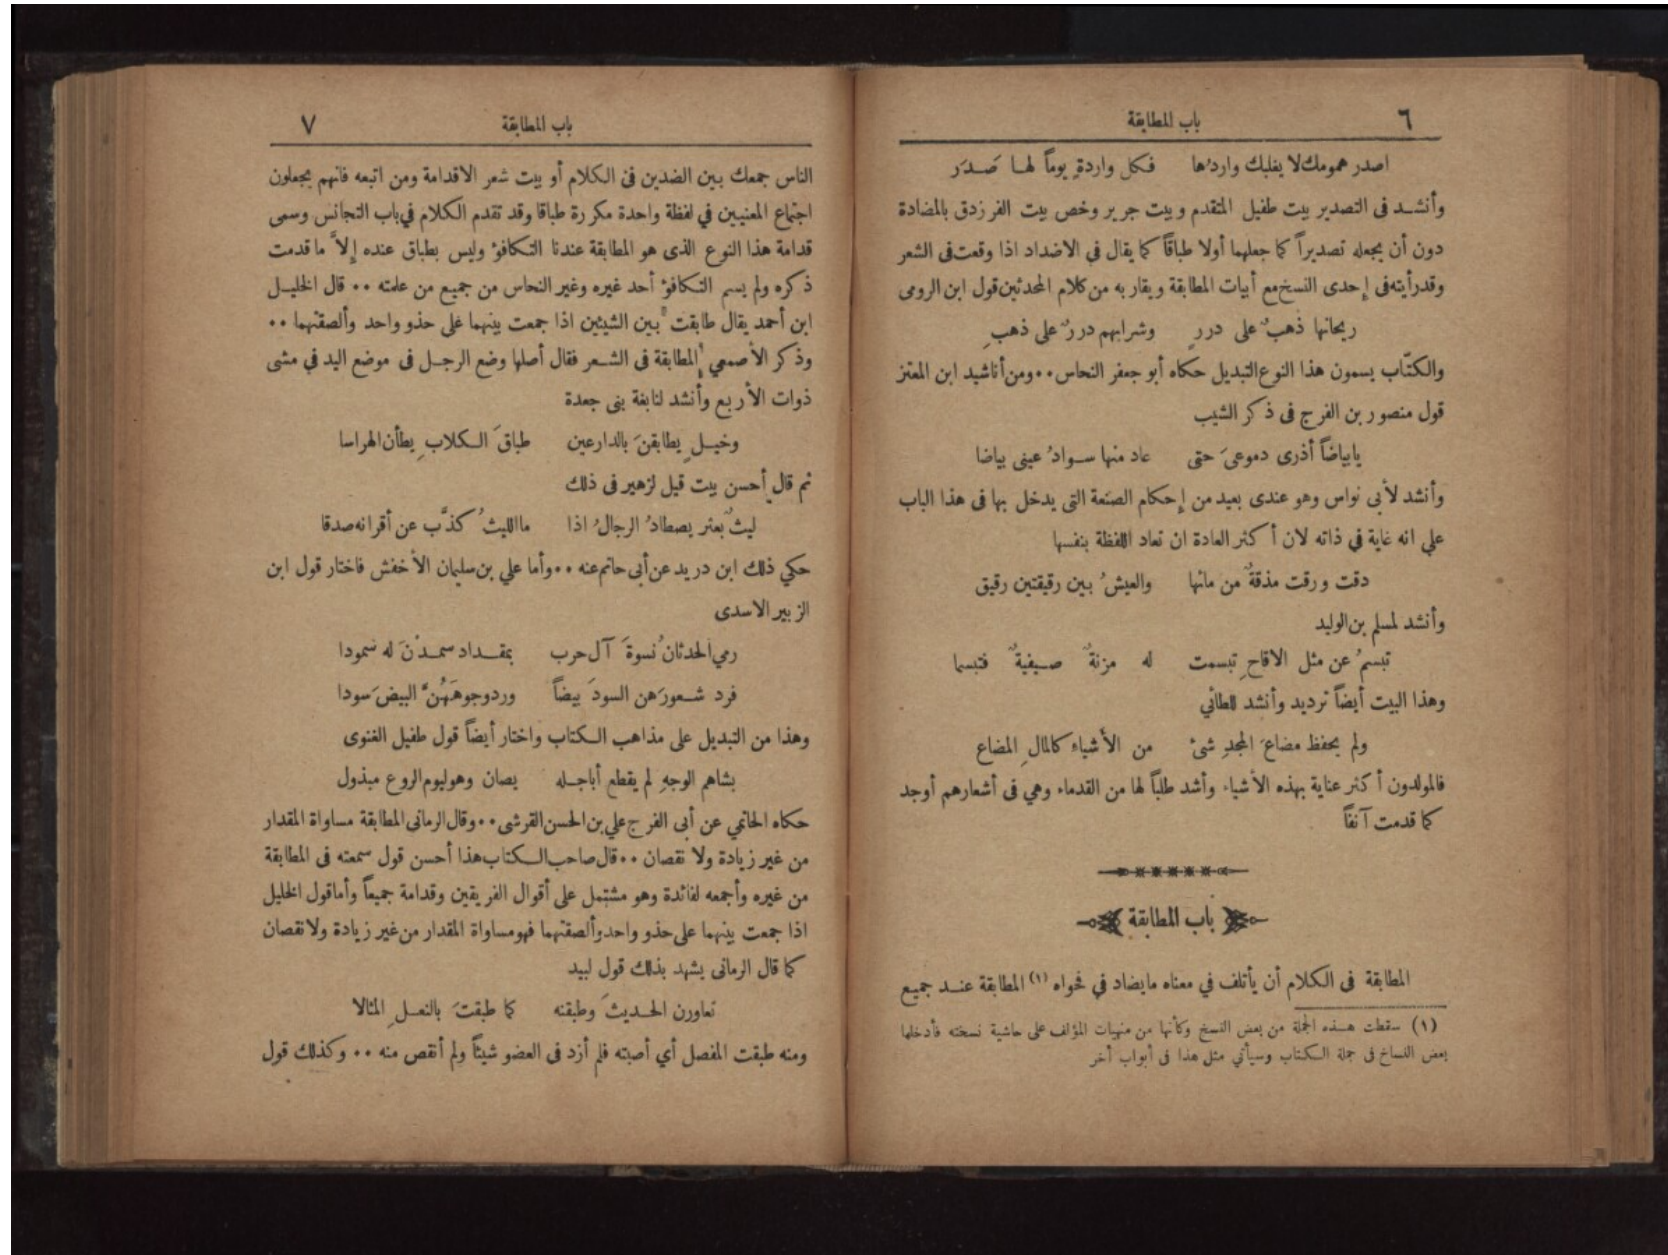 ٦
باب المطابقة
اصدر همومك لا يغلبك واردُها فكل واردةٍ يوماً لها صَدَر
وأنشد فى التصدير بيت طفيل المتقدم وبيت جرير وخص بيت الفرزدق بالمضادة
دون أن يجعله تصديراً كما جعلهما أولا طباقاً كما يقال في الاضداد اذا وقعت فى الشعر
وقد رأيته فى إحدى النسخ مع أبيات المطابقة ويقاربه من كلام المحدثين قول ابن الرومى
ريحانها ذهبٌ على دررٍ وشرابهم دررٌ على ذهبِ
والكتّاب يسمون هذا النوع التبديل حكاه أبو جعفر النحاس ٠٠ ومن أناشيد ابن المعتز
قول منصور بن الفرج فى ذكر الشيب
يابياضاً أذرى دموعىَ حتى عاد منها سوادُ عينى بياضا
وأنشد لأبى نواس وهو عندى بعيد من إحكام الصنعة التى يدخل بها فى هذا الباب
علي انه غاية في ذاته لان أكثر العادة ان تعاد اللفظة بنفسها
دقت ورقت مذقةٌ من مائها والعيشُ بين رقيقتين رقيق
وأنشد لمسلم بن الوليد
تبسمُ عن مثل الاقاحِ تبسمت له مزنةٌ صيفيةٌ فتبسما
وهذا البيت أيضاً ترديد وأنشد للطائي
ولم يحفظ مضاعَ المجدِ شئ من الأشياءِ كالمالِ المضاع
فالمولدون أكثر عناية بهذه الأشياء وأشد طلباً لها من القدماء وهي فى أشعارهم أوجد
كما قدمت آنفاً
باب المطابقة
المطابقة فى الكلام أن يأتلف في معناه مايضاد في فحواه (١) المطابقة عند جميع
(١) سقطت هذه الجملة من بعض النسخ وكأنها من منهيات المؤلف على حاشية نسخته فأدخلها
بعض النساخ فى جملة الكتاب وسيأتي مثل هذا فى أبواب أخر
٧
باب المطابقة
الناس جمعك بين الضدين فى الكلام أو بيت شعر الاقدامة ومن اتبعه فانهم يجعلون
اجتماع المعنيين في لفظة واحدة مكررة طباقا وقد تقدم الكلام في باب التجانس وسمى
قدامة هذا النوع الذى هو المطابقة عندنا التكافؤ وليس بطباق عنده إلاَّ ما قدمت
ذكره ولم يسم التكافؤ أحد غيره وغير النحاس من جميع من علمته ٠٠ قال الخليل
ابن أحمد يقال طابقت بين الشيئين اذا جمعت بينهما على حذو واحد وألصقتهما ٠٠
وذكر الأصمعي المطابقة فى الشعر فقال أصلها وضع الرجل فى موضع اليد في مشى
ذوات الأربع وأنشد لنابغة بنى جعدة
وخيلٍ يطابقنَ بالدارعين طباقَ الكلابِ يطأن الهراسا
ثم قال أحسن بيت قيل لزهير فى ذلك
ليثٌ بعثر يصطادُ الرجالُ اذا ماالليثُ كذَّب عن أقرانه صدقا
حكي ذلك ابن دريد عن أبى حاتم عنه ٠٠ وأما علي بن سليمان الأخفش فاختار قول ابن
الزبير الاسدى
رمي الحدثانُ نسوةَ آل حرب بمقداد سمدْنَ له سمودا
فرد شعورَهن السودَ بيضاً وردوجوهَهُنَّ البيضَ سودا
وهذا من التبديل على مذاهب الكتاب واختار أيضاً قول طفيل الغنوى
بشاهم الوجهِ لم يقطع أباجله يصان وهوليوم الروع مبذول
حكاه الحاتمي عن أبى الفرج علي بن الحسن القرشى ٠٠ وقال الرمانى المطابقة مساواة المقدار
من غير زيادة ولا نقصان ٠٠ قال صاحب الكتاب هذا أحسن قول سمعته فى المطابقة
من غيره وأجمعه لفائدة وهو مشتمل على أقوال الفريقين وقدامة جميعاً وأماقول الخليل
اذا جمعت بينهما على حذو واحد وألصقتهما فهو مساواة المقدار من غير زيادة ولا نقصان
كما قال الرمانى يشهد بذلك قول لبيد
تعاورن الحديثَ وطبقنه كما طبقتَ بالنعلِ المثالا
ومنه طبقت المفصل أي أصبته فلم أزد فى العضو شيئاً ولم أنقص منه ٠٠ وكذلك قول